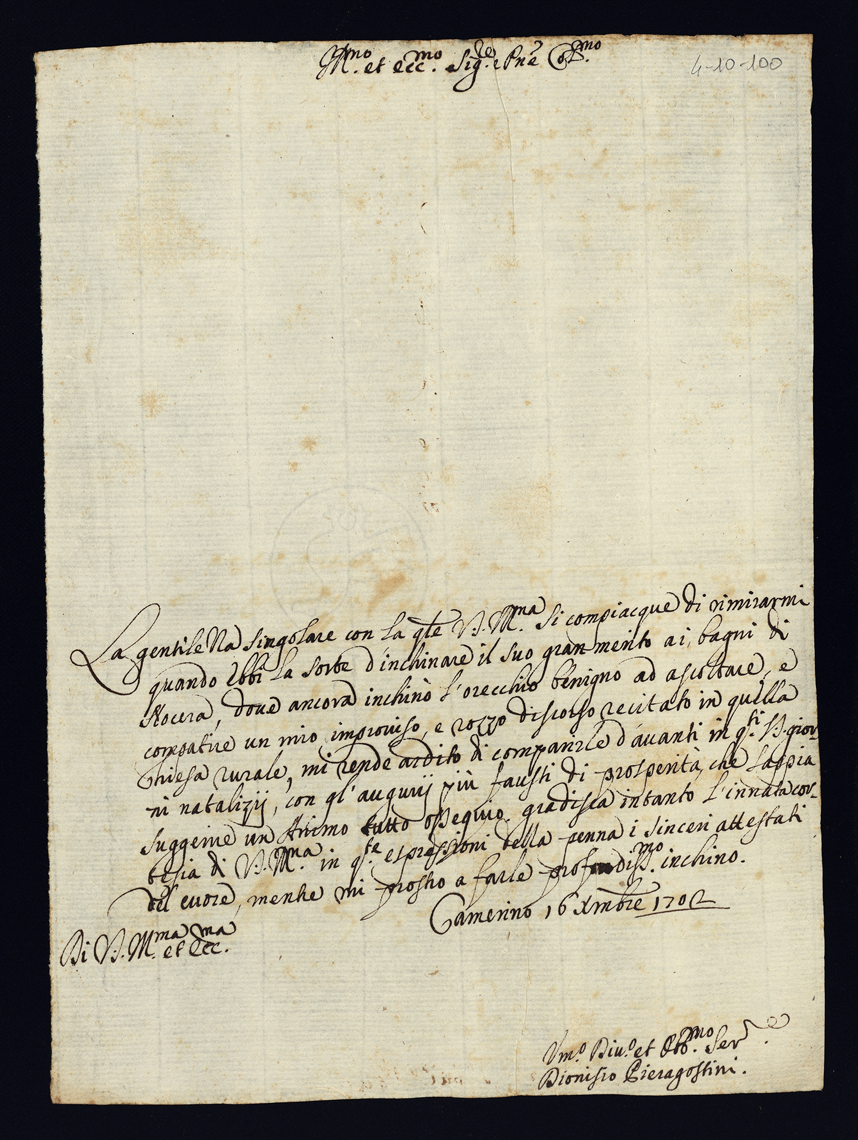 Ill.mo et ecc.mo Sig.re e Pne Col.mo
4-10-100
La gentilezza singolare con la qle V.S. Ill.ma si compiacque di rimirarmi
quando ebbi la sorte d'inchinare il suo gran merito a i bagni di
Nocera, dove ancora inchinò l'orecchio benigno ad ascoltare, e
compatire un mio improviso, e rozzo discorso recitato in quella
Chiesa rurale, mi rende ardito di comparirle d'avanti in q.ti SS. gior-
ni natalizij, con gl'augurij più fausti di prosperità, che sappia
suggerire un Animo tutto ossequio. gradisca intanto l'innata cor-
tesia di V.S. Ill.ma in q.te espressioni della penna i sinceri attestati
del cuore, mentre mi prostro a farle profondiss.mo inchino.
Camerino 16 Xmbre 1702
Di V.S. Ill.ma et Ecc.ma
Vm.o Div.o et Obb.mo Ser.re
Dionisio Pieragostini.